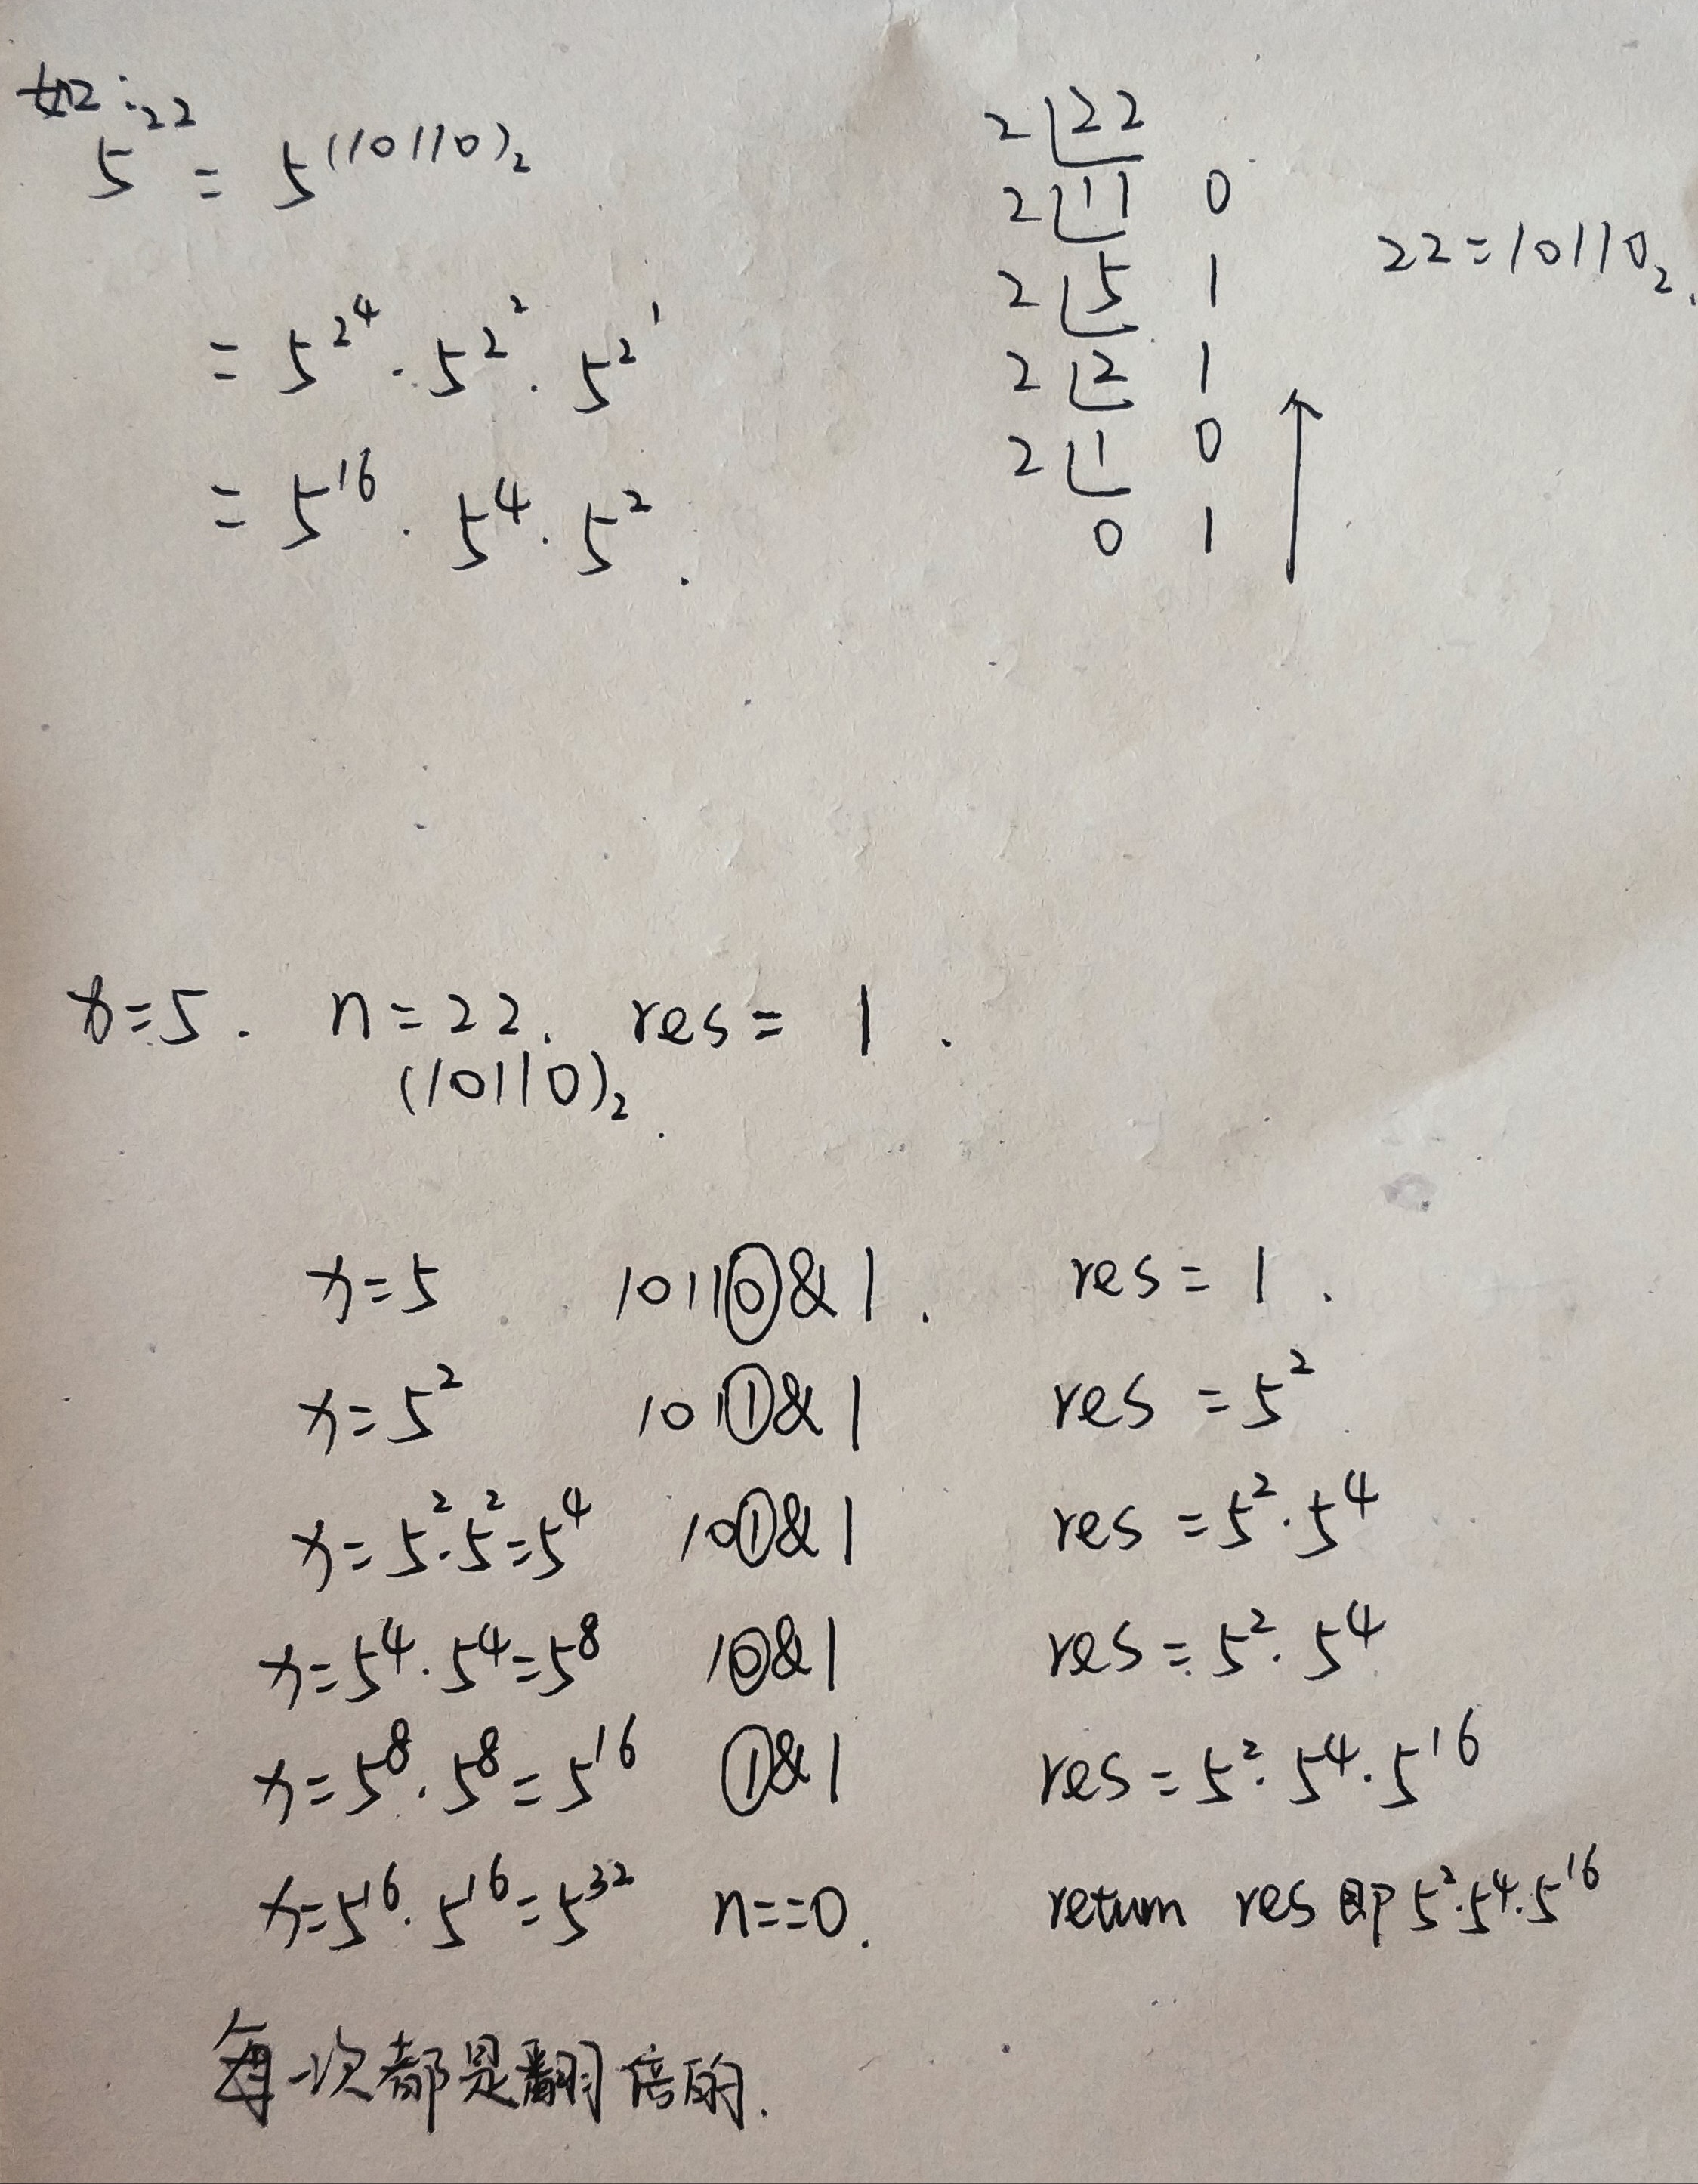 如:
5^22 = 5^(10110)₂
= 5^2^4 · 5^2^2 · 5^2^1
= 5^16 · 5^4 · 5^2.
2 22
2 11 0
2 5 1
2 2 1
2 1 0
0 1
22=10110₂.
x=5. n=22. res= 1.
(10110)₂.
x=5 10110&1. res=1.
x=5² 1011&1 res=5²
x=5²·5²=5⁴ 101&1 res=5²·5⁴
x=5⁴·5⁴=5⁸ 10&1 res=5²·5⁴
x=5⁸·5⁸=5¹⁶ 1&1 res=5²·5⁴·5¹⁶
x=5¹⁶·5¹⁶=5³² n==0. return res 即 5²·5⁴·5¹⁶
每一次都是翻倍的.